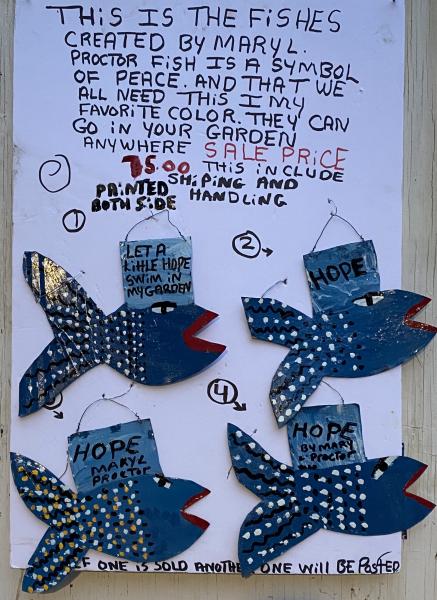 THIS IS THE FISHES
CREATED BY MARY L.
PROCTOR FISH IS A SYMBOL
OF PEACE. AND THAT WE
ALL NEED THIS I MY
FAVORITE COLOR. THEY CAN
GO IN YOUR GARDEN
ANYWHERE SALE PRICE
75.00 THIS INCLUDE
PAINTED SHIPING AND
BOTH SIDE HANDLING
1
LET A
LITTLE HOPE
SWIM IN
MY GARDEN
2
HOPE
HOPE
MARY L
PROCTOR
4
HOPE
BY MARY
PROCTOR
IF ONE IS SOLD ANOTHER ONE WILL BE POSTED